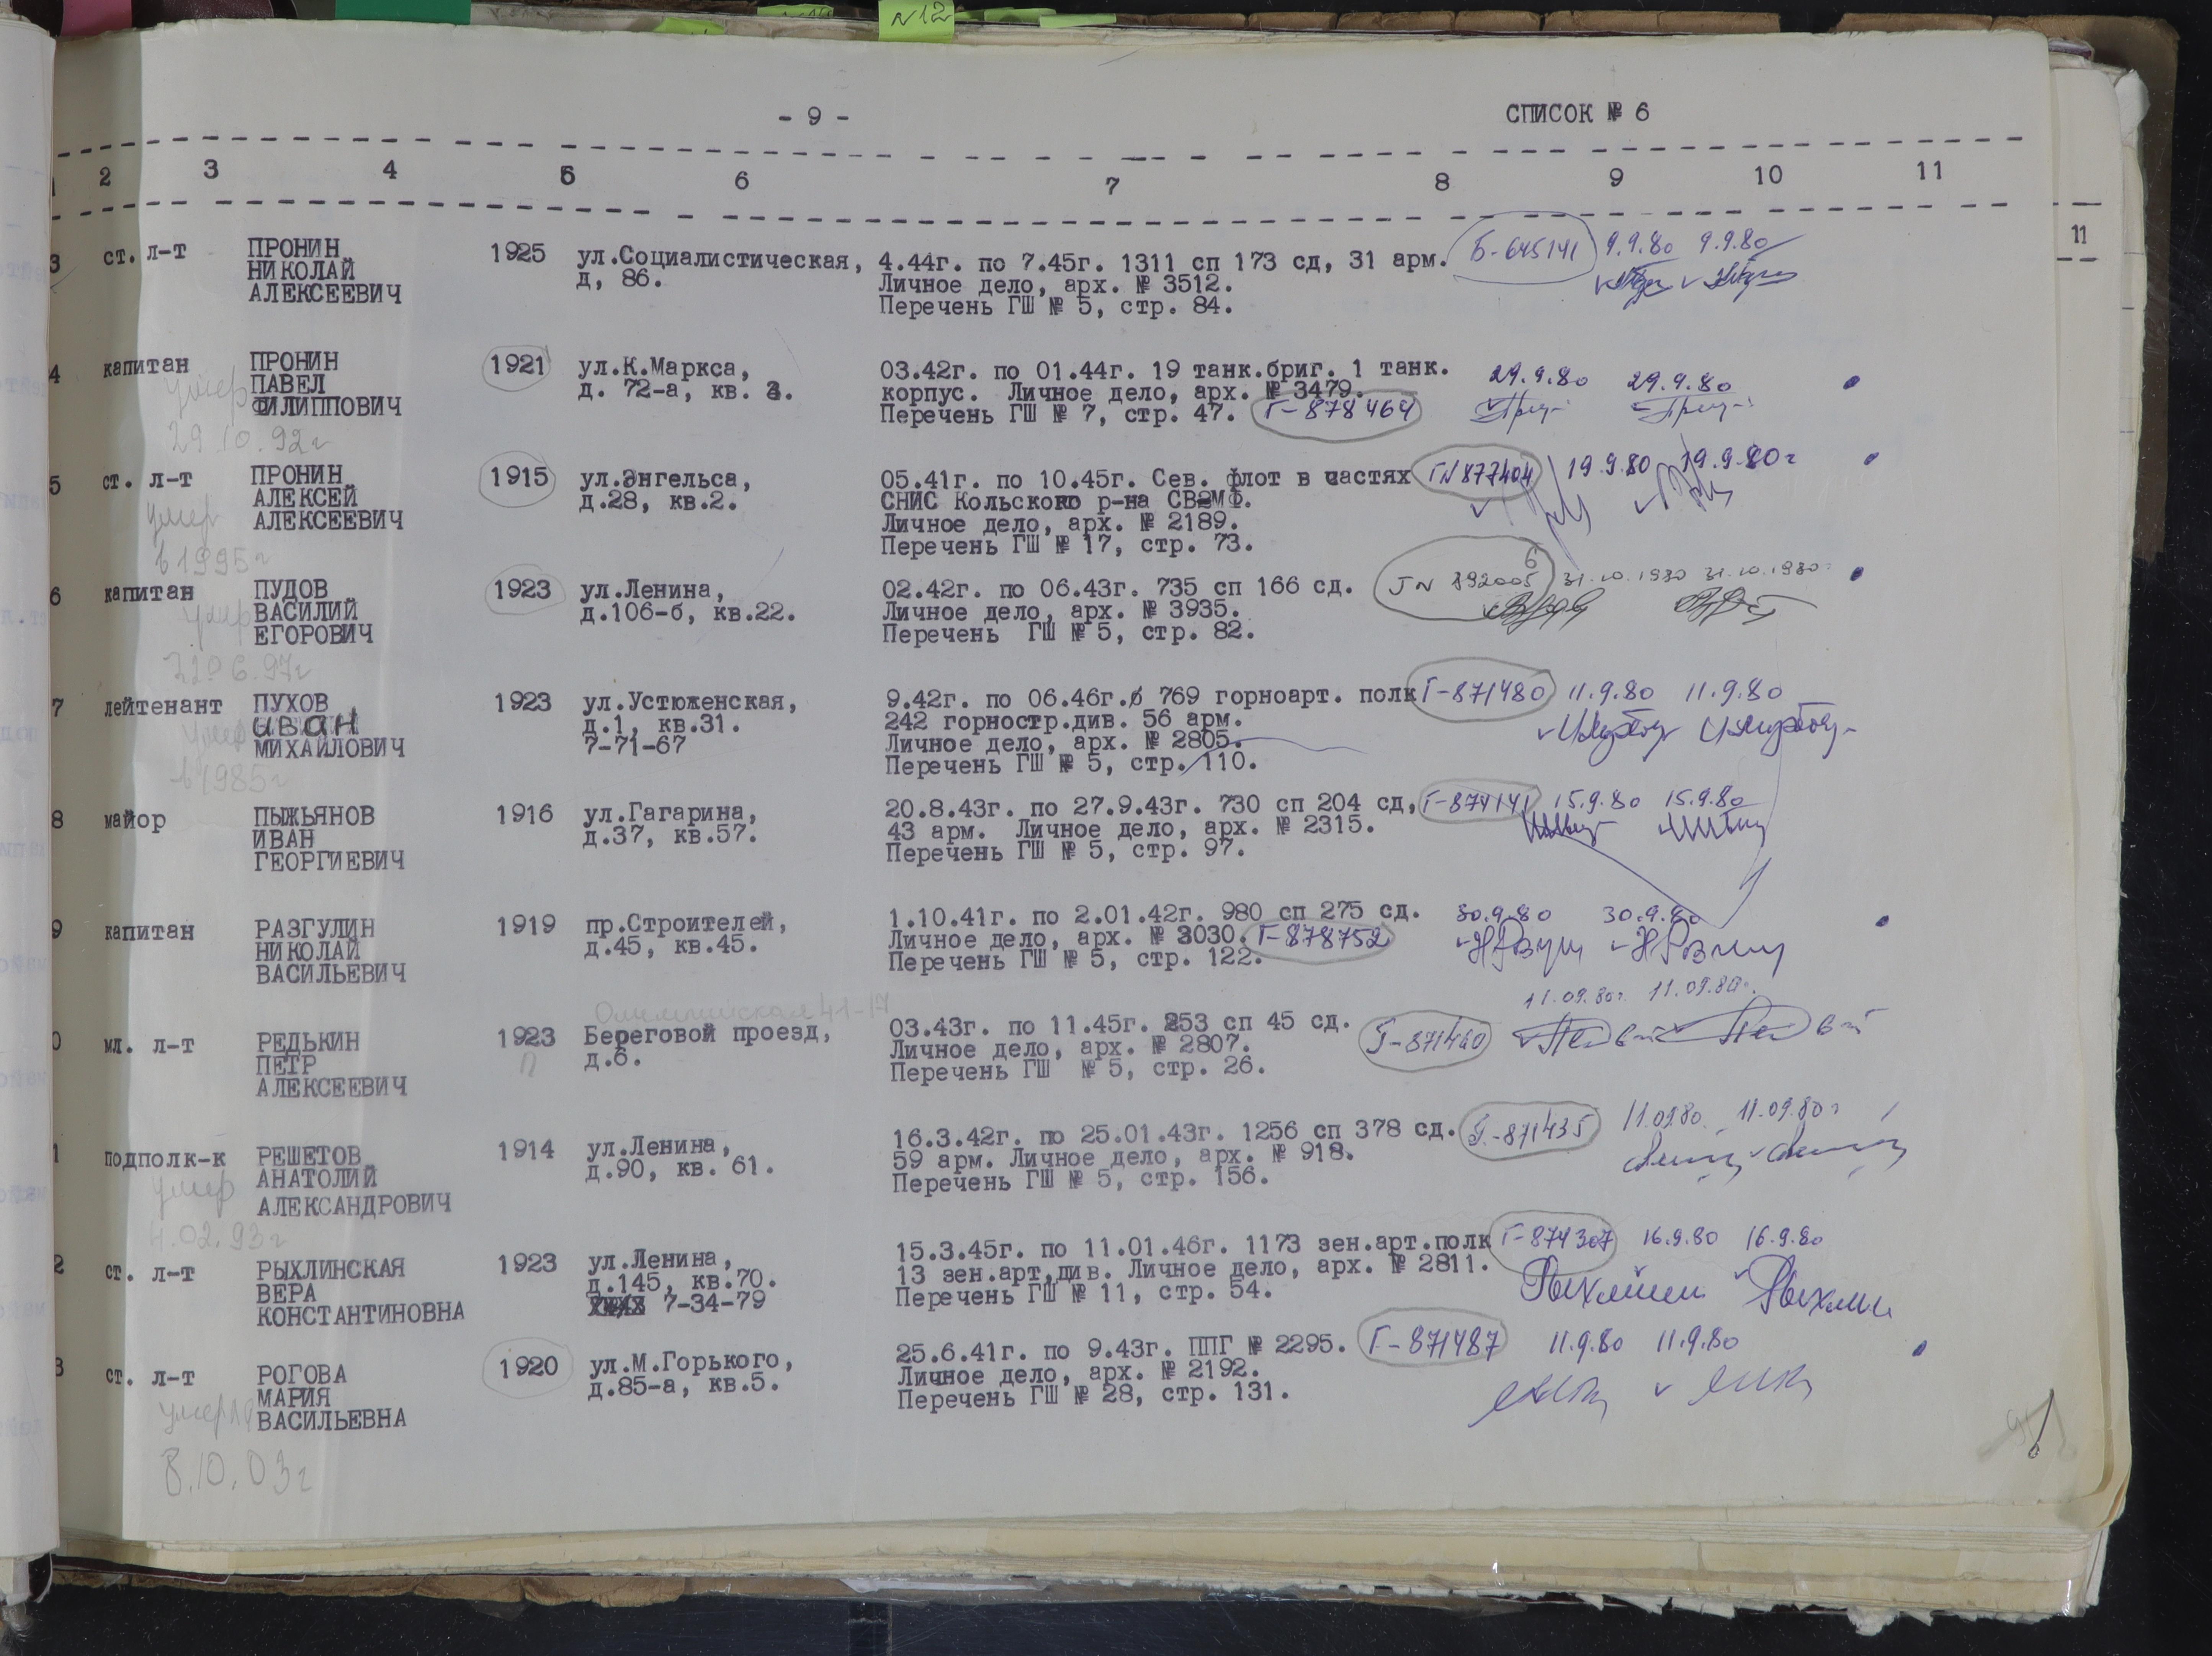 N12
- 9 -
СПИСОК № 6
2 3 4 5 6 7 8 9 10 11
11
3 ст. л-т ПРОНИН 1925 ул.Социалистическая, 4.44г. по 7.45г. 1311 сп 173 сд, 31 арм. Б-645141 9.9.80 9.9.80
НИКОЛАЙ д, 86. Личное дело, арх. № 3512.
АЛЕКСЕЕВИЧ Перечень ГШ № 5, стр. 84.
4 капитан ПРОНИН 1921 ул.К.Маркса, 03.42г. по 01.44г. 19 танк.бриг. 1 танк. 29.9.80 29.9.80
умер ПАВЕЛ д. 72-а, кв. 3. корпус. Личное дело, арх. № 3479.
ФИЛИППОВИЧ Перечень ГШ № 7, стр. 47. Г-878464
29.10.92г
5 ст. л-т ПРОНИН 1915 ул.Энгельса, 05.41г. по 10.45г. Сев. флот в частях Г№877404 19.9.80 19.9.80г
умер АЛЕКСЕЙ д.28, кв.2. СНИС Кольского р-на СВМФ.
АЛЕКСЕЕВИЧ Личное дело, арх. № 2189.
в 1995г Перечень ГШ № 17, стр. 73.
6 капитан ПУДОВ 1923 ул.Ленина, 02.42г. по 06.43г. 735 сп 166 сд. 31.10.1980 31.10.1980г
умер ВАСИЛИЙ д.106-б, кв.22. Личное дело, арх. № 3935.
ЕГОРОВИЧ Перечень ГШ № 5, стр. 82.
22.06.97г
7 лейтенант ПУХОВ 1923 ул.Устюженская, 9.42г. по 06.46г. 769 горноарт. полк Г-871480 11.9.80 11.9.80
умер иван д.1, кв.31. 242 горностр.див. 56 арм.
МИХАЙЛОВИЧ 7-71-67 Личное дело, арх. № 2805.
в 1985г Перечень ГШ № 5, стр. 110.
8 майор ПЫЖЬЯНОВ 1916 ул.Гагарина, 20.8.43г. по 27.9.43г. 730 сп 204 сд, Г-874141 15.9.80 15.9.80
ИВАН д.37, кв.57. 43 арм. Личное дело, арх. № 2315.
ГЕОРГИЕВИЧ Перечень ГШ № 5, стр. 97.
9 капитан РАЗГУЛИН 1919 пр.Строителей, 1.10.41г. по 2.01.42г. 980 сп 275 сд. 30.9.80 30.9.80
НИКОЛАЙ д.45, кв.45. Личное дело, арх. № 3030. Г-878752
ВАСИЛЬЕВИЧ Перечень ГШ № 5, стр. 122.
Олимпийская 41-17
0 мл. л-т РЕДЬКИН 1923 Береговой проезд, 03.43г. по 11.45г. 253 сп 45 сд. Г-871460 11.09.80г. 11.09.80г.
ПЕТР д.6. Личное дело, арх. № 2807.
АЛЕКСЕЕВИЧ Перечень ГШ № 5, стр. 26.
1 подполк-к РЕШЕТОВ 1914 ул.Ленина, 16.3.42г. по 25.01.43г. 1256 сп 378 сд. Г-871435 11.09.80 11.09.80г
умер АНАТОЛИЙ д.90, кв. 61. 59 арм. Личное дело, арх. № 918.
АЛЕКСАНДРОВИЧ Перечень ГШ № 5, стр. 156.
4.02.93г
2 ст. л-т РЫХЛИНСКАЯ 1923 ул.Ленина, 15.3.45г. по 11.01.46г. 1173 зен.арт.полк Г-874307 16.9.80 16.9.80
ВЕРА д.145, кв.70. 13 зен.арт.див. Личное дело, арх. № 2811.
КОНСТАНТИНОВНА 7-34-79 Перечень ГШ № 11, стр. 54.
3 ст. л-т РОГОВА 1920 ул.М.Горького, 25.6.41г. по 9.43г. ППГ № 2295. Г-871487 11.9.80 11.9.80
умерла МАРИЯ д.85-а, кв.5. Личное дело, арх. № 2192.
ВАСИЛЬЕВНА Перечень ГШ № 28, стр. 131.
8.10.03г